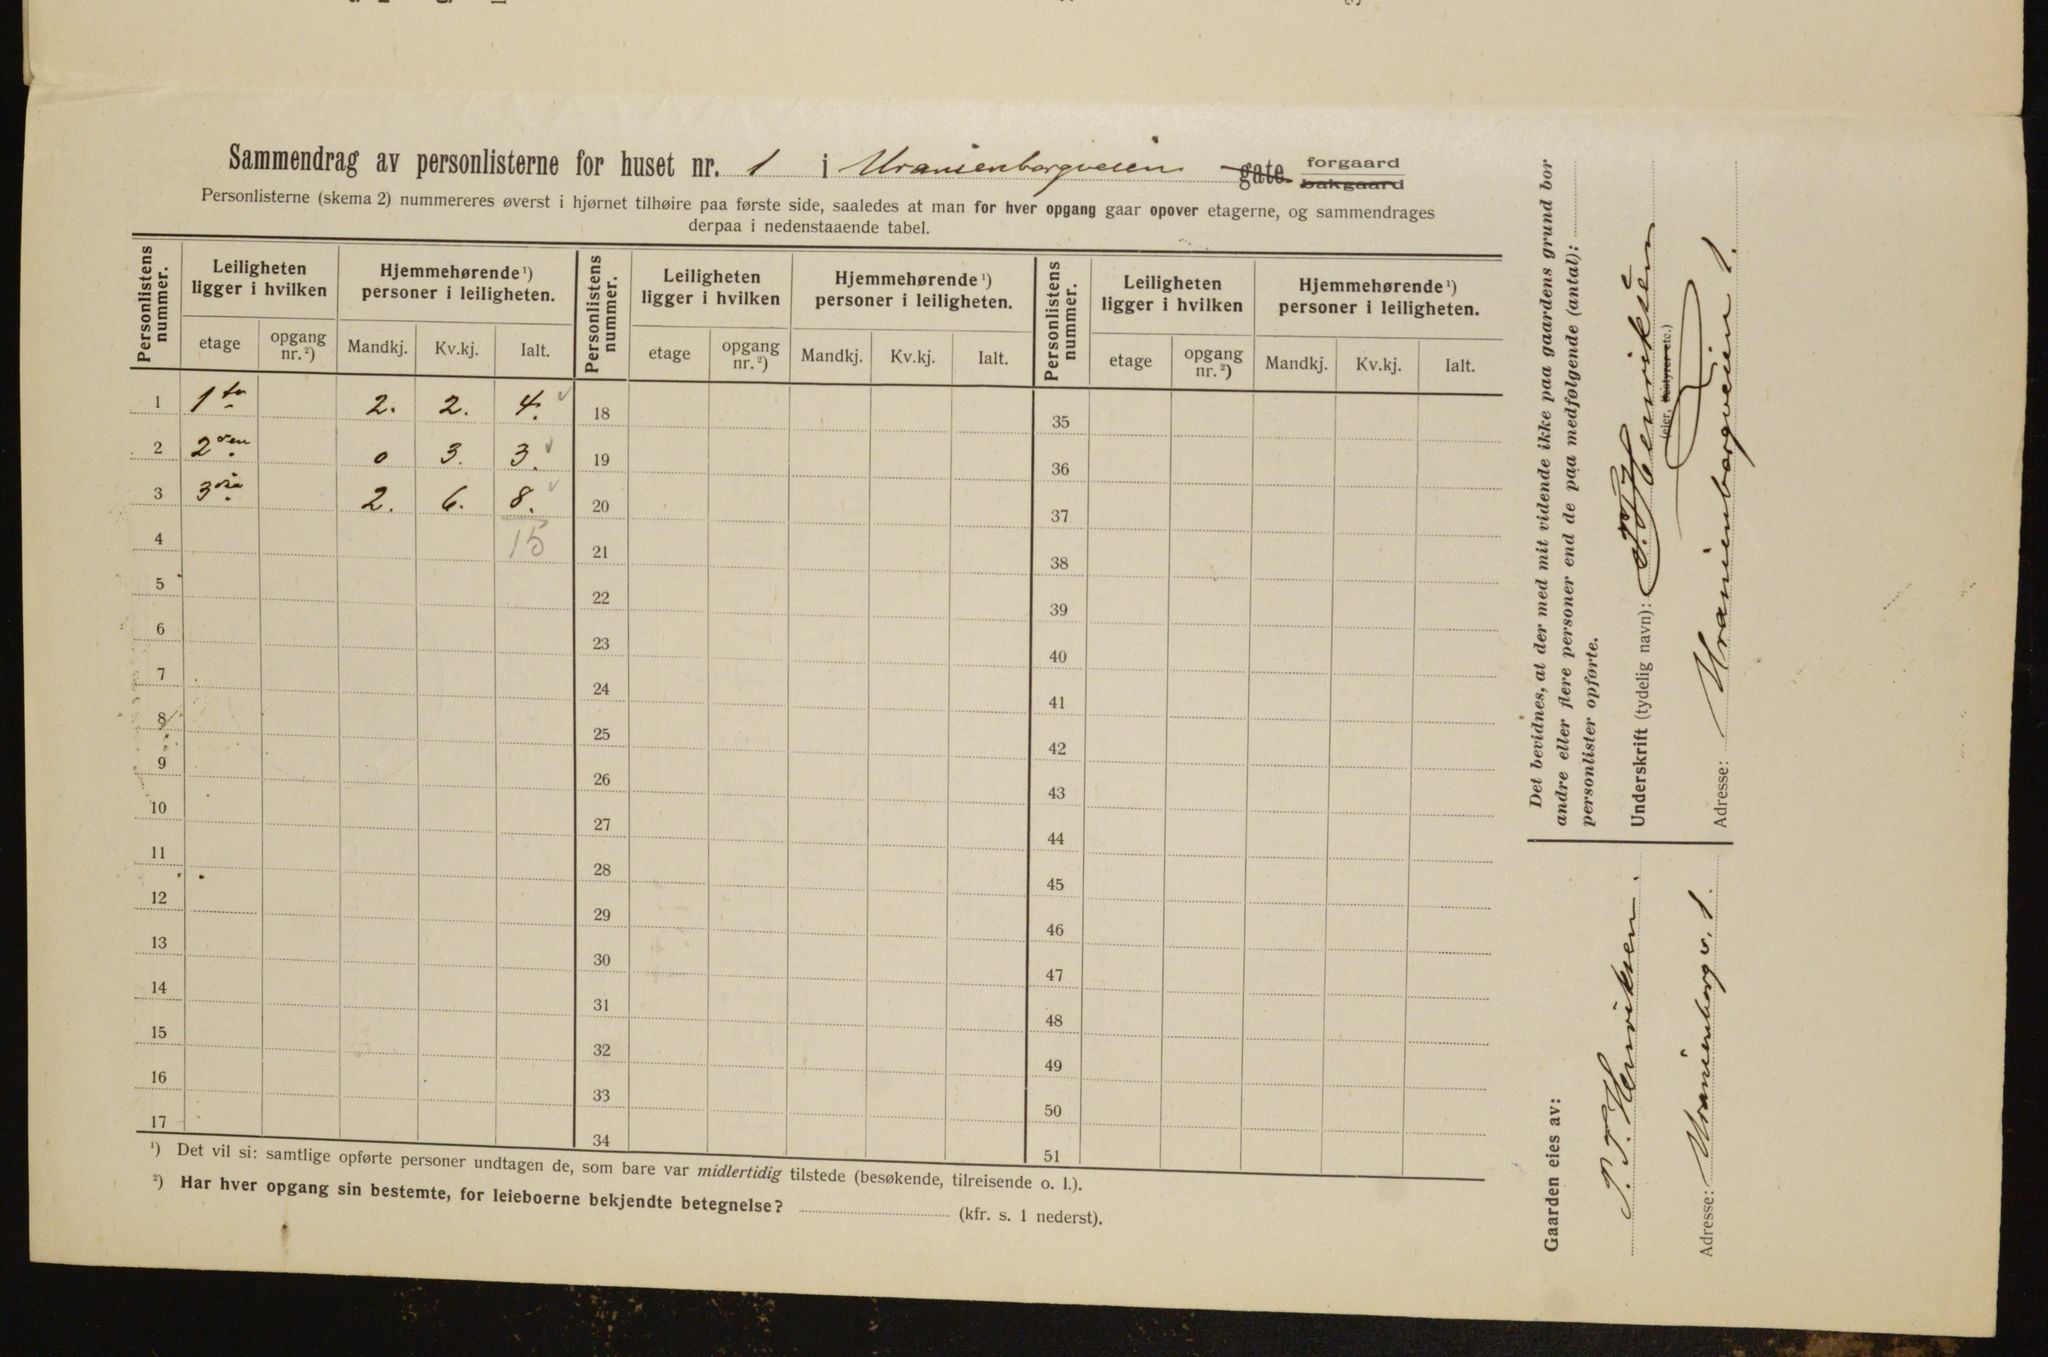 Sammendrag av personlisterne for huset nr. 1 i Uranienborgveien gate. forgaard bakgaard
Personlisterne (skema 2) nummereres øverst i hjørnet tilhøire paa første side, saaledes at man for hver opgang gaar opover etagerne, og sammendrages
derpaa i nedenstaaende tabel.
Personlistens nummer. Leiligheten ligger i hvilken Hjemmehørende ¹) personer i leiligheten. Personlistens nummer. Leiligheten ligger i hvilken Hjemmehørende ¹) personer i leiligheten. Personlistens nummer. Leiligheten ligger i hvilken Hjemmehørende ¹) personer i leiligheten.
etage opgang nr. ²) Mandkj. Kv.kj. Ialt. etage opgang nr. ²) Mandkj. Kv.kj. Ialt. etage opgang nr. ²) Mandkj. Kv.kj. Ialt.
1 1ste 2. 2. 4. 18 35
2 2den 0 3. 3. 19 36
3 3die 2. 6. 8. 20 37
4 15 21 38
5 22 39
6 23 40
7 24 41
8 25 42
9 26 43
10 27 44
11 28 45
12 29 46
13 30 47
14 31 48
15 32 49
16 33 50
17 34 51
¹) Det vil si: samtlige opførte personer undtagen de, som bare var midlertidig tilstede (besøkende, tilreisende o. l.).
²) Har hver opgang sin bestemte, for leieboerne bekjendte betegnelse? (kfr. s. 1 nederst).
Det bevidnes, at der med mit vidende ikke paa gaardens grund bor
andre eller flere personer end de paa medfølgende (antal):
personlister opførte.
Underskrift (tydelig navn): P. T. Henriksen
(eier, bestyrer etc.)
Adresse: Uranienborgveien 1.
Gaarden eies av:
P. T. Henriksen.
Adresse: Uranienborgv. 1.